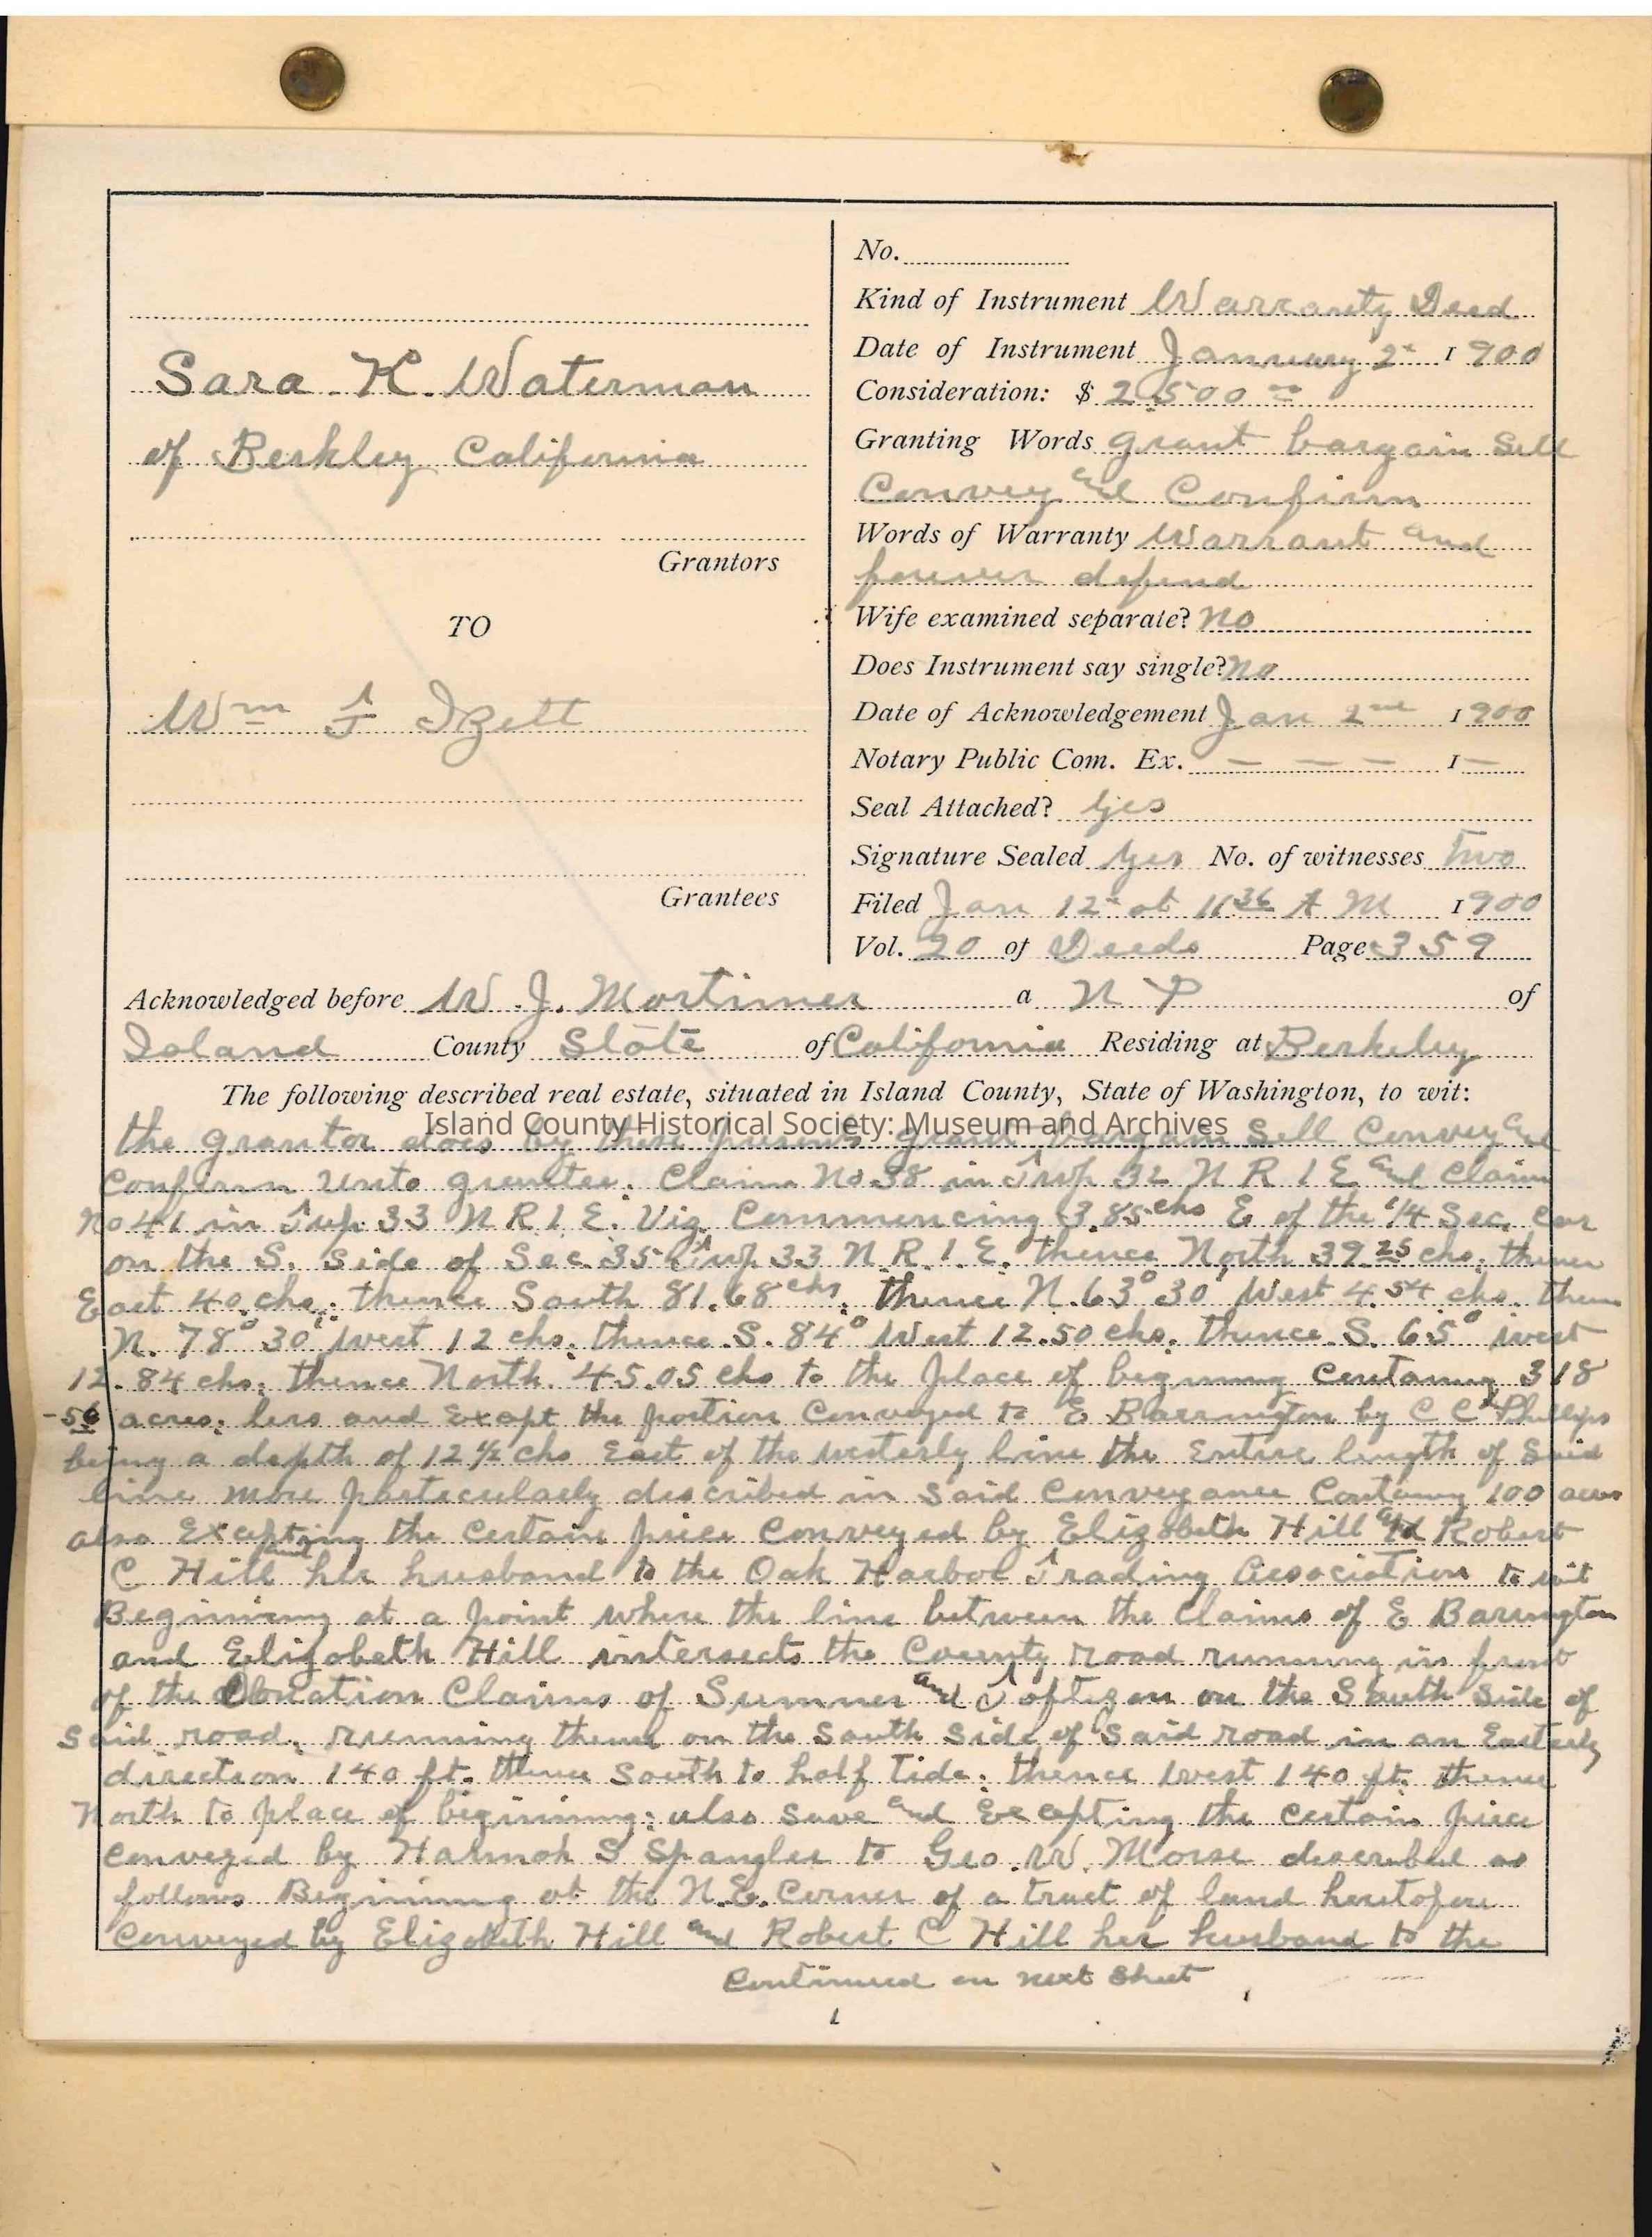 No.
Kind of Instrument Warranty Deed
Date of Instrument January 2" 1900
Sara K. Waterman
Consideration: $ 2500
of Berkley California
Granting Words grant bargain Sell
Convey and Confirm
Words of Warranty Warrant and
Grantors
forever defend
TO
Wife examined separate? no
Does Instrument say single? no
Wm T Izett
Date of Acknowledgement Jan 2nd 1900
Notary Public Com. Ex. — — — 1 —
Seal Attached? Yes
Signature Sealed Yes No. of witnesses Two
Grantees
Filed Jan 12" at 11 36 A M 1900
Vol. 20 of Deeds Page 359
Acknowledged before W. J. Mortimer a N P of
Island County State of California Residing at Berkeley
The following described real estate, situated in Island County, State of Washington, to wit:
Island County Historical Society: Museum and Archives
the grantor does by these presents grant bargain Sell Convey and
Confirm Unto grantee. Claim No 38 in Twp 32 N R 1 E and Claim
No 41 in Twp 33 N R 1 E. Viz Commencing 3.85 chs E of the 1/4 Sec. Cor
on the S. Side of Sec. 35 Twp 33 N R. 1. E. thence North 39.25 chs; thence
East 40 chs; thence South 81.68 chs. thence N. 63° 30' West 4.54 chs. then
N. 78° 30' West 12 chs; thence S. 84° West 12.50 chs. thence S. 65° west
12.84 chs; thence North 45.05 chs to the place of beginning Containing 318
-56 acres; less and Except the portion Conveyed to E Barrington by C C Phillips
being a depth of 12 1/2 chs East of the westerly line the Entire length of Said
line more particularly described in Said Conveyance Containg 100 acres
also Excepting the Certain piece Conveyed by Elizabeth Hill and Robert
C Hill her husband to the Oak Harbor Trading Association to wit
Beginning at a point where the line between the Claims of E Barrington
and Elizabeth Hill intersects the County road running in front
of the Donation Claims of Sumner and Toftezen on the South Side of
Said road, running thence on the South Side of Said road in an Easterly
direction 140 ft. thence South to half Tide; thence West 140 ft. thence
North to place of beginning; also Save and Excepting the Certain piece
Conveyed by Hannah S Spangler to Geo. W. Morse described as
follows Beginning at the N.E. Corner of a tract of land heretofore
Conveyed by Elizabeth Hill and Robert C Hill her husband to the
Continued on next Sheet
1